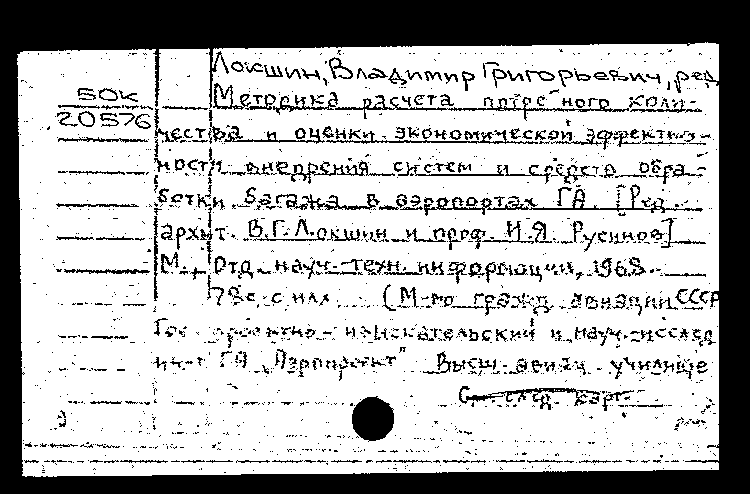 Локшин, Владимир Григорьевич, ред.
БОК
20576
Методика расчета потребного коли-
чества и оценки экономической эффектив-
ности внедрения систем и средств обра-
ботки багажа в аэропортах ГА. [Ред.
архит. В.Г. Локшин и проф. И.Я. Русинов]
М., Отд. науч.-техн. информации, 1968.
78 с. с илл. (М-во гражд. авиации СССР
Гос. проектно-изыскательский и науч.-исслед
ин-т ГА „Аэропроект" Высш. авиац. училище
См. след. карт.